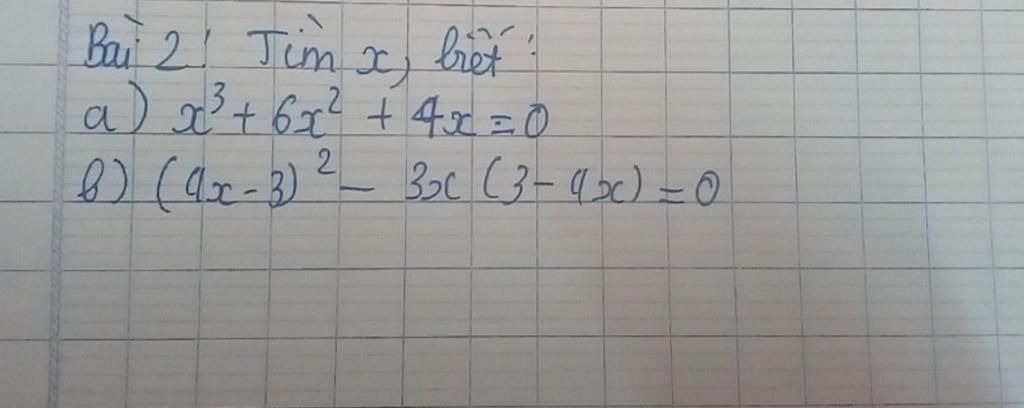 Bài 2: Tìm x, biết:
a) x³ + 6x² + 4x = 0
b) (4x - 3)² - 3x (3 - 4x) = 0